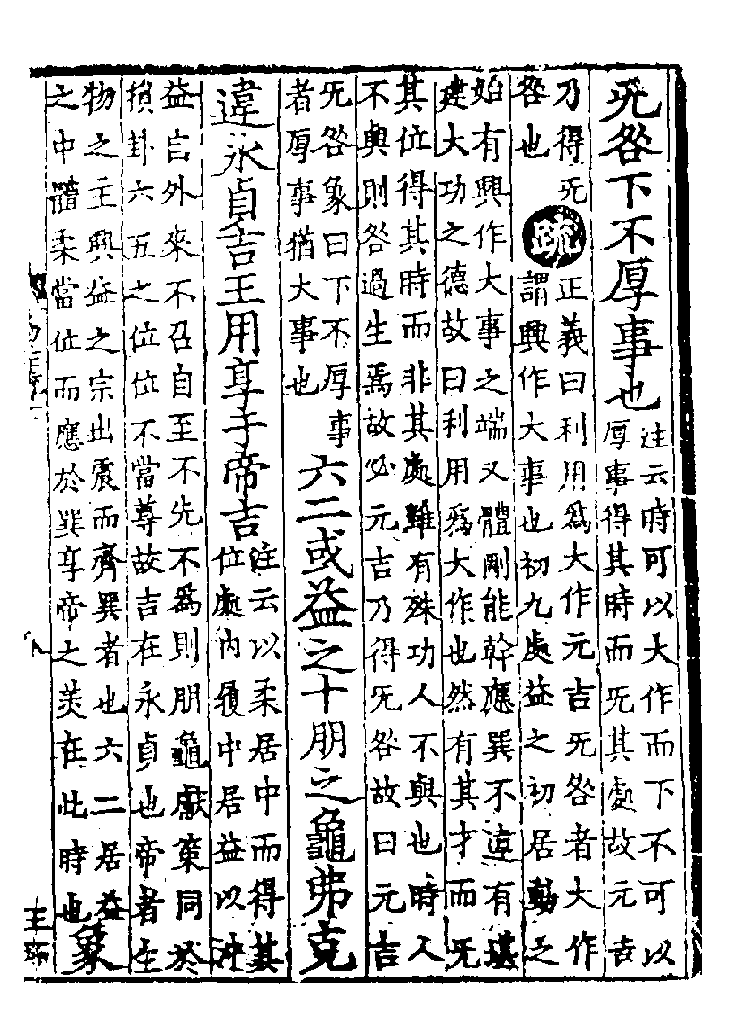 无咎下不厚事也注云時可以大作而下不可以
厚事得其時而无其處故元吉
乃得无
咎也
疏
正義曰利用為大作元吉无咎者大作
謂興作大事也初九處益之初居動之
始有興作大事之端又體剛能幹應巽不違有堪
建大功之德故曰利用為大作也然有其才而无
其位得其時而非其處雖有殊功人不與也時人
不與則咎過生焉故必元吉乃得无咎故曰元吉
无咎象曰下不厚事
者厚事猶大事也
六二或益之十朋之龜弗克
違永貞吉王用享于帝吉注云以柔居中而得其
位處內履中居益以沖
益自外來不召自至不先不為則朋龜獻策同於
損卦六五之位位不當尊故吉在永貞也帝者生
物之主興益之宗出震而齊巽者也六二居益
之中體柔當位而應於巽享帝之美在此時也
象